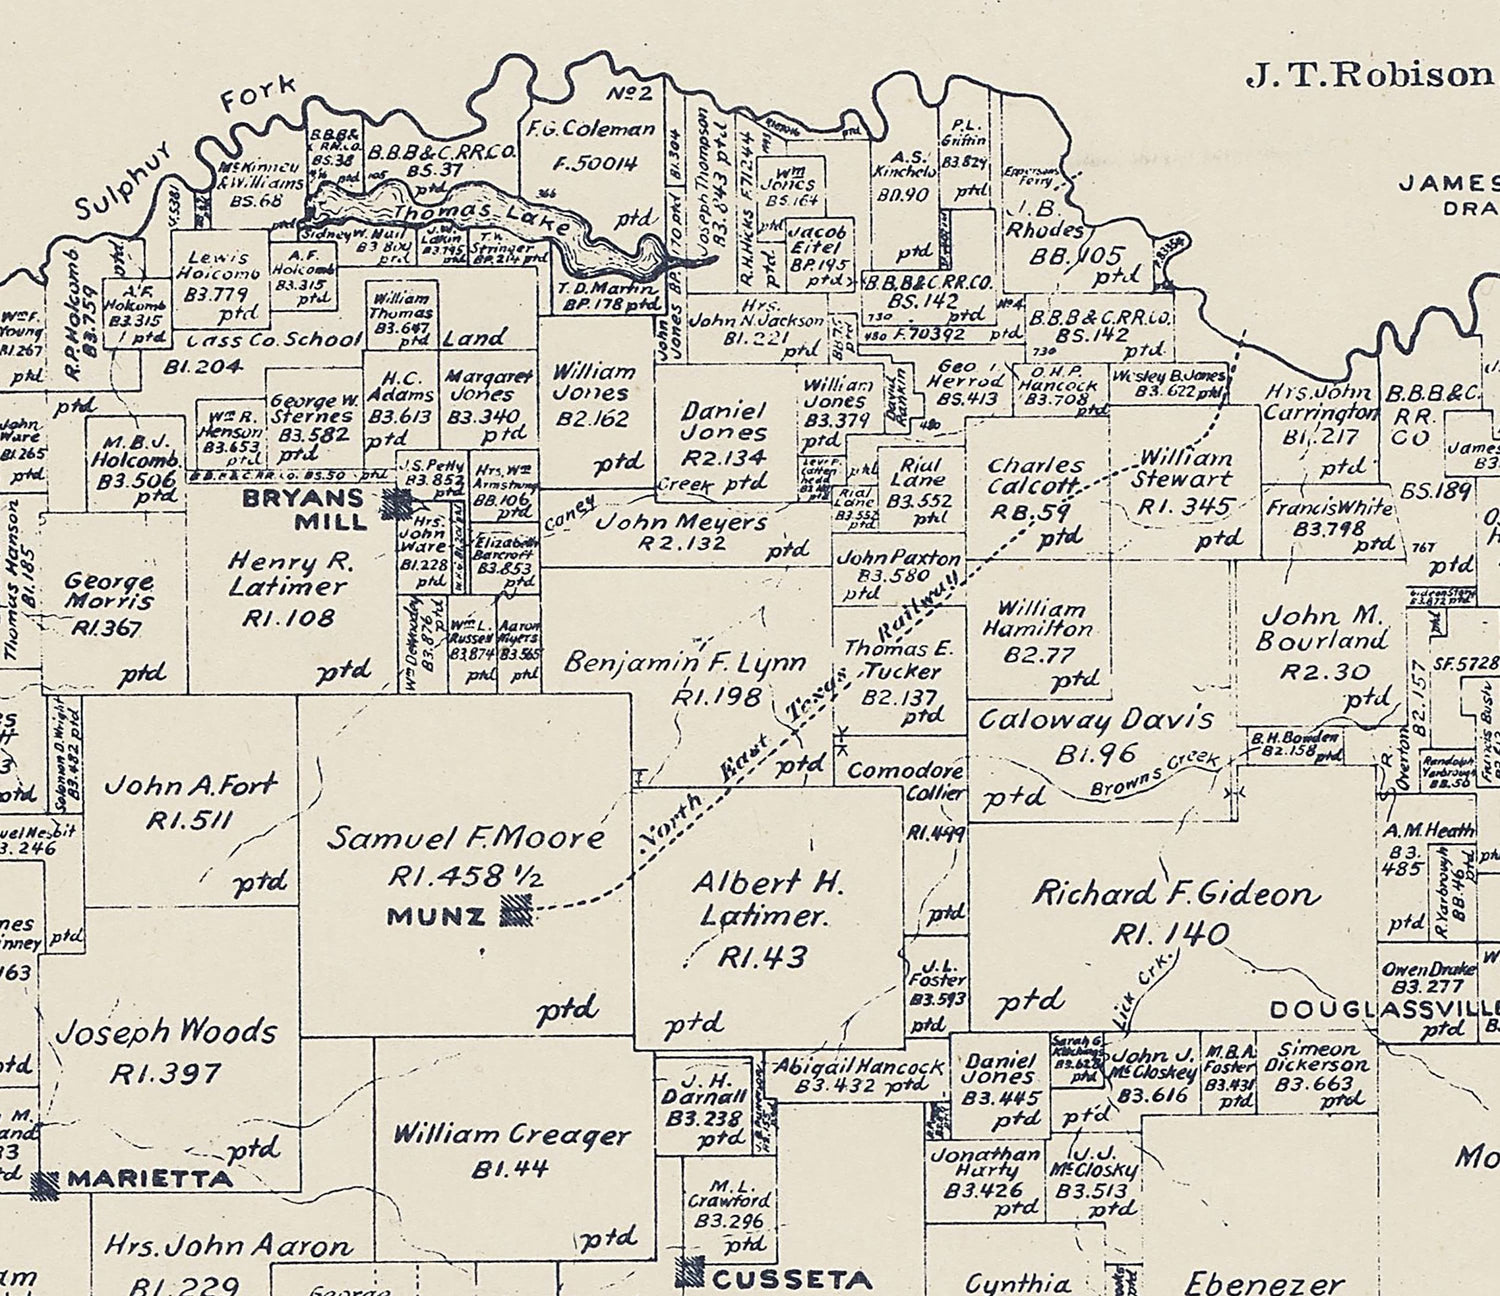 J. T. Robison
JAMES
DRA
Sulphur Fork
No2
F. G. Coleman
F. 50014
366
ptd
B.B.B.&C.RR.CO.
BS.37
ptd
105
B.B.B&
RR.CO.
BS.38
ptd
McKinney
& Williams
BS.68
ptd
Thomas Lake
B1.304
Joseph Thompson
B3.843 ptd
R.H.Hicks F.71244
ptd
Wm
Jones
BS.164
ptd
Jacob
Eitel
BP.195
ptd
A.S.
Kinchelo
ptd
P.L.
Griffin
B3.824
ptd
Eppersons
Ferry
J. B.
Rhodes
BB. 105
ptd
Sidney W. Nail
ptd
T.W.
Stringer
BP.214 ptd
T. D. Martin
BP. 178 ptd
Lewis
Holcomb
B3.779
ptd
A.F.
Holcomb
B3.315
ptd
A.F.
Holcomb
B3.315
ptd
R.P. Holcomb
B3.759
ptd
ptd
Wm F.
Young
B1.267
ptd
John
Ware
B1.265
ptd
Cass Co. School Land
B1.204
William
Thomas
B3.647
ptd
H.C.
Adams
B3.613
ptd
Margaret
Jones
B3.340
ptd
George W.
Sternes
B3.582
ptd
Wm R.
Henson
B3.653
ptd
M.B.J.
Holcomb
B3.506
ptd
B.B.B.&C.RR.CO. BS.50 ptd
William
Jones
B2.162
ptd
John
Jones BP. 170 ptd
Hrs.
John N. Jackson
B1.221
ptd
B.B.B.&C.RR.CO.
BS.142
730
ptd
480 F.70392 ptd
No4
B.B.B.&C.RR.CO.
BS.142
730
ptd
Daniel
Jones
R2.134
ptd
William
Jones
B3.379
ptd
David
Rankin
480
Geo
Herrod
BS.413
O.H.P.
Hancock
B3.708
ptd
Wesley B. Jones
B3.622 ptd
Hrs. John
Carrington
B1.217
ptd
B.B.B.&C.
RR.
CO
BS.189
767
ptd
James
B3
J.S. Petty
B3.852
ptd
Hrs. Wm
Armstrong
BB.106
ptd
BRYANS
MILL
Hrs.
John
Ware
B1.228
ptd
Elizabeth
Barcroft
B3.853
ptd
Caney Creek
John Meyers
R2.132
ptd
Rial
Lane
B3.552
ptd
ptd
Rial
Lane
B3.552
ptd
Charles
Calcott
RB.59
ptd
William
Stewart
R1.345
ptd
Francis White
B3.798
ptd
Thomas Hanson
B1.185
George
Morris
R1.367
ptd
Henry R.
Latimer
R1.108
ptd
B3.876
ptd
Wm L.
Russell
B3.874
ptd
Aaron
Myers
B3.565
ptd
Benjamin F. Lynn
R1.198
ptd
John Paxton
B3.580
ptd
Thomas E.
Tucker
B2.137
ptd
William
Hamilton
B2.77
ptd
John M.
Bourland
R2.30
ptd
B2.157
ptd
SF.5728
Francis Bush
Caloway Davis
B1.96
ptd
Browns Creek
B.H. Bowden
B2.158
ptd
R
Overton
Randolph
Yarbrough
BB.50
Solomon D. Wright
B3.482 ptd
John A. Fort
R1.511
ptd
uel Nesbit
3.246
Samuel F. Moore
R1.458 1/2
MUNZ
ptd
North East Texas Railway
Comodore
Collier
R1.499
ptd
Albert H.
Latimer.
R1.43
ptd
Richard F. Gideon
R1.140
ptd
A.M. Heath
B3.
485
ptd
R. Yarbrough
BB.46
ptd
nes
inney
ptd
163
J.L.
Foster
B3.593
ptd
Lick Crk.
Owen Drake
B3.277
ptd
DOUGLASSVILLE
Joseph Woods
R1.397
ptd
J. H.
Darnall
B3.238
ptd
Abigail Hancock
B3.432 ptd
Daniel
Jones
B3.445
ptd
Sarah G.
B3.628
ptd
John J.
McCloskey
B3.616
ptd
M.B.A.
Foster
B3.431
ptd
Simeon
Dickerson
B3.663
ptd
William Creager
B1.44
ptd
MARIETTA
M.L.
Crawford
B3.296
ptd
Jonathan
Harty
B3.426
ptd
J.J.
McClosky
B3.513
ptd
Mo
Hrs. John Aaron
B1.229
George
CUSSETA
Cynthia
Ebenezer